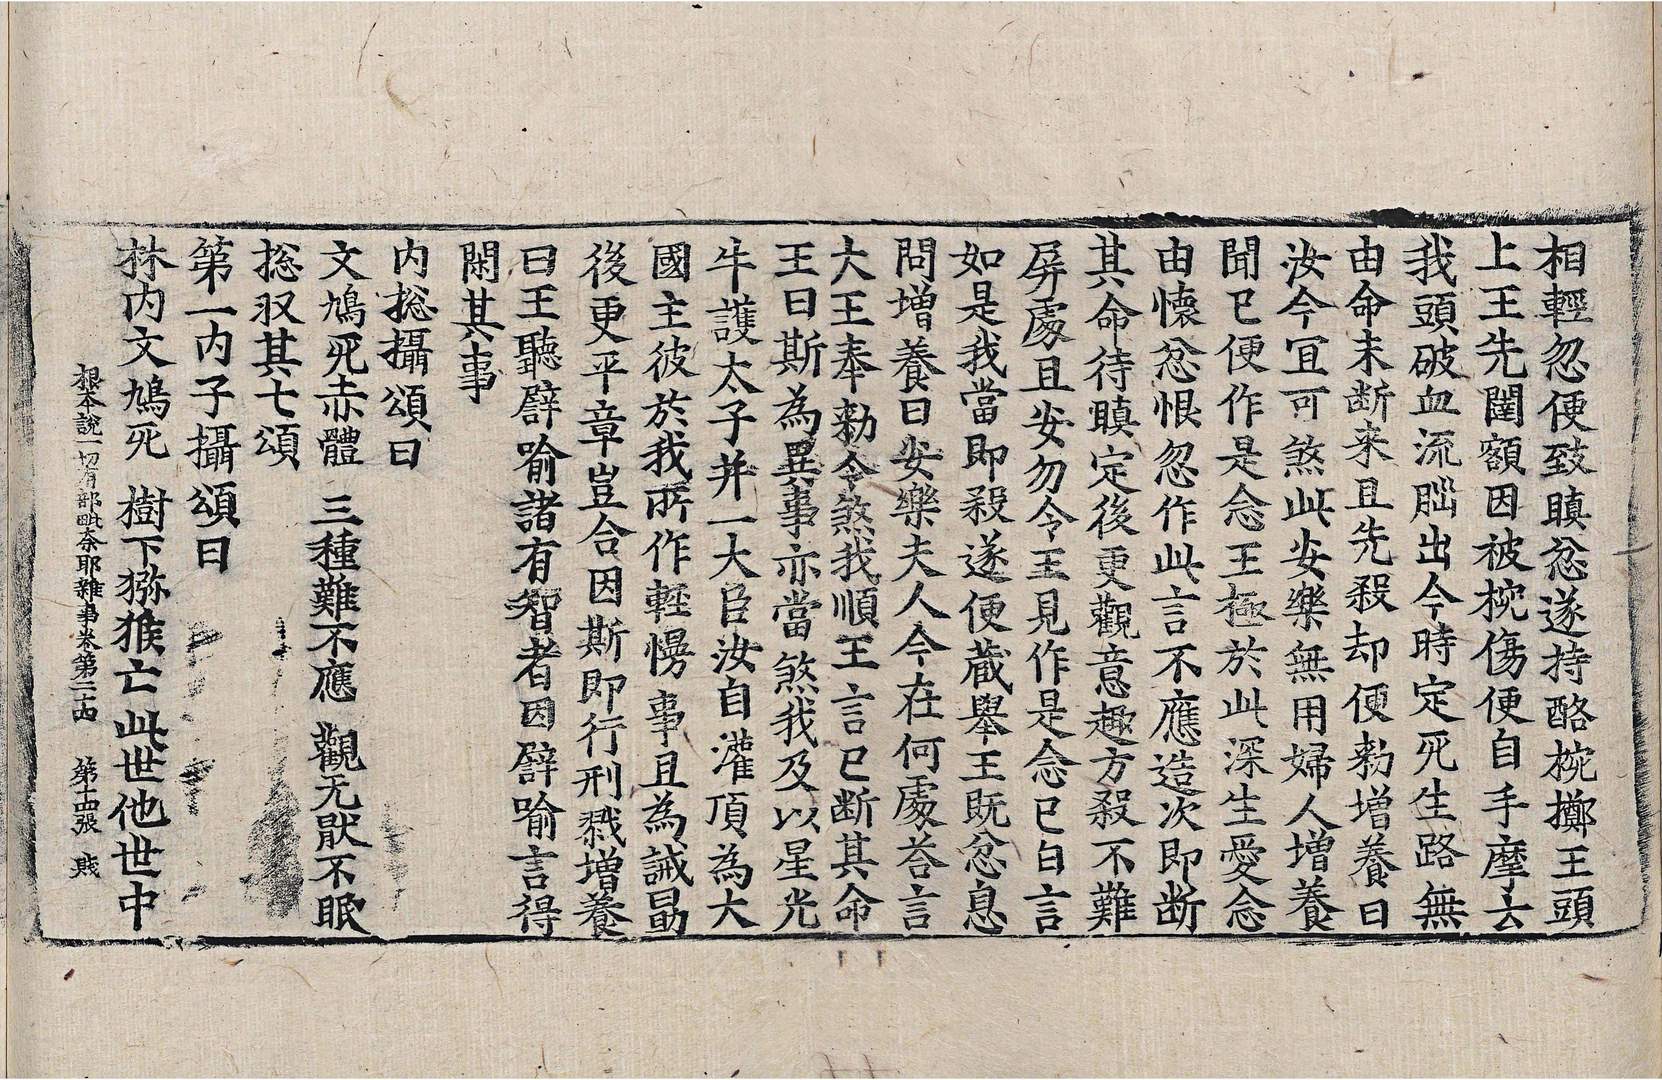 相輕忽便致瞋忿遂持酪椀擲王頭
上王先闇額因被椀傷便自手摩去
我頭破血流𦙄出今時定死生路無
由命未断来且先殺却便勑增養曰
汝今宜可煞此安樂無用婦人增養
聞已便作是念王極於此深生愛念
由懷忿恨忽作此言不應造次即断
其命待瞋定後更觀意趣方殺不難
屏處且安勿令王見作是念已白言
如是我當即殺遂便蔵舉王既忿息
問增養曰安樂夫人今在何處荅言
大王奉勑令煞我順王言已断其命
王曰斯為異事亦當煞我及以星光
牛護太子并一大臣汝自灌頂為大
國主彼於我所作輕慢事且為誡勗
後更平章豈合因斯即行刑戮增養
曰王聽譬喻諸有智者因譬喻言得
閑其事
内揔攝頌曰
文鳩死赤體 三種難不應 觀无猒不眠
揔収其七頌
第一内子攝頌曰
林内文鳩死 樹下獼猴亡 此世他世中
根本說一切有部毗奈耶雜事卷第二四 第十四張 賎